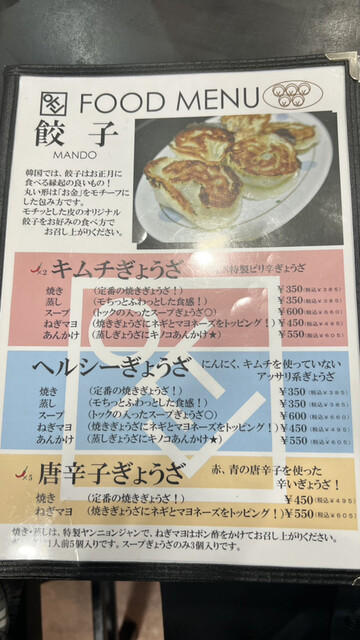 FOOD MENU
餃子
MANDO
韓国では、餃子はお正月に
食べる縁起の良いもの！
丸い形は「お金」をモチーフに
した包み方です。
モチッとした皮のオリジナル
餃子をお好みの食べ方で
お召し上がりください。
×2 キムチぎょうざ 特製ピリ辛ぎょうざ
焼き (定番の焼きぎょうざ！) ￥350(税込￥385)
蒸し (モちっとふわっとした食感！) ￥350(税込￥385)
スープ (トックの入ったスープぎょうざ〇) ￥600(税込￥660)
ねぎマヨ (焼きぎょうざにネギとマヨネーズをトッピング！) ￥450(税込￥495)
あんかけ (蒸しぎょうざにキノコあんかけ★) ￥550(税込￥605)
ヘルシーぎょうざ にんにく、キムチを使っていない
アッサリ系ぎょうざ
焼き (定番の焼きぎょうざ！) ￥350(税込￥385)
蒸し (モちっとふわっとした食感！) ￥350(税込￥385)
スープ (トックの入ったスープぎょうざ〇) ￥600(税込￥660)
ねぎマヨ (焼きぎょうざにネギとマヨネーズをトッピング！) ￥450(税込￥495)
あんかけ (蒸しぎょうざにキノコあんかけ★) ￥550(税込￥605)
×5 唐辛子ぎょうざ 赤、青の唐辛子を使った
辛いぎょうざ！
焼き (定番の焼きぎょうざ！) ￥450(税込￥495)
ねぎマヨ (焼きぎょうざにネギとマヨネーズをトッピング！) ￥550(税込￥605)
焼き・蒸しは、特製ヤンニョンジャンで、ねぎマヨはポン酢をかけてお召し上がりください。
1人前5個入りです。スープぎょうざのみ3個入りです。